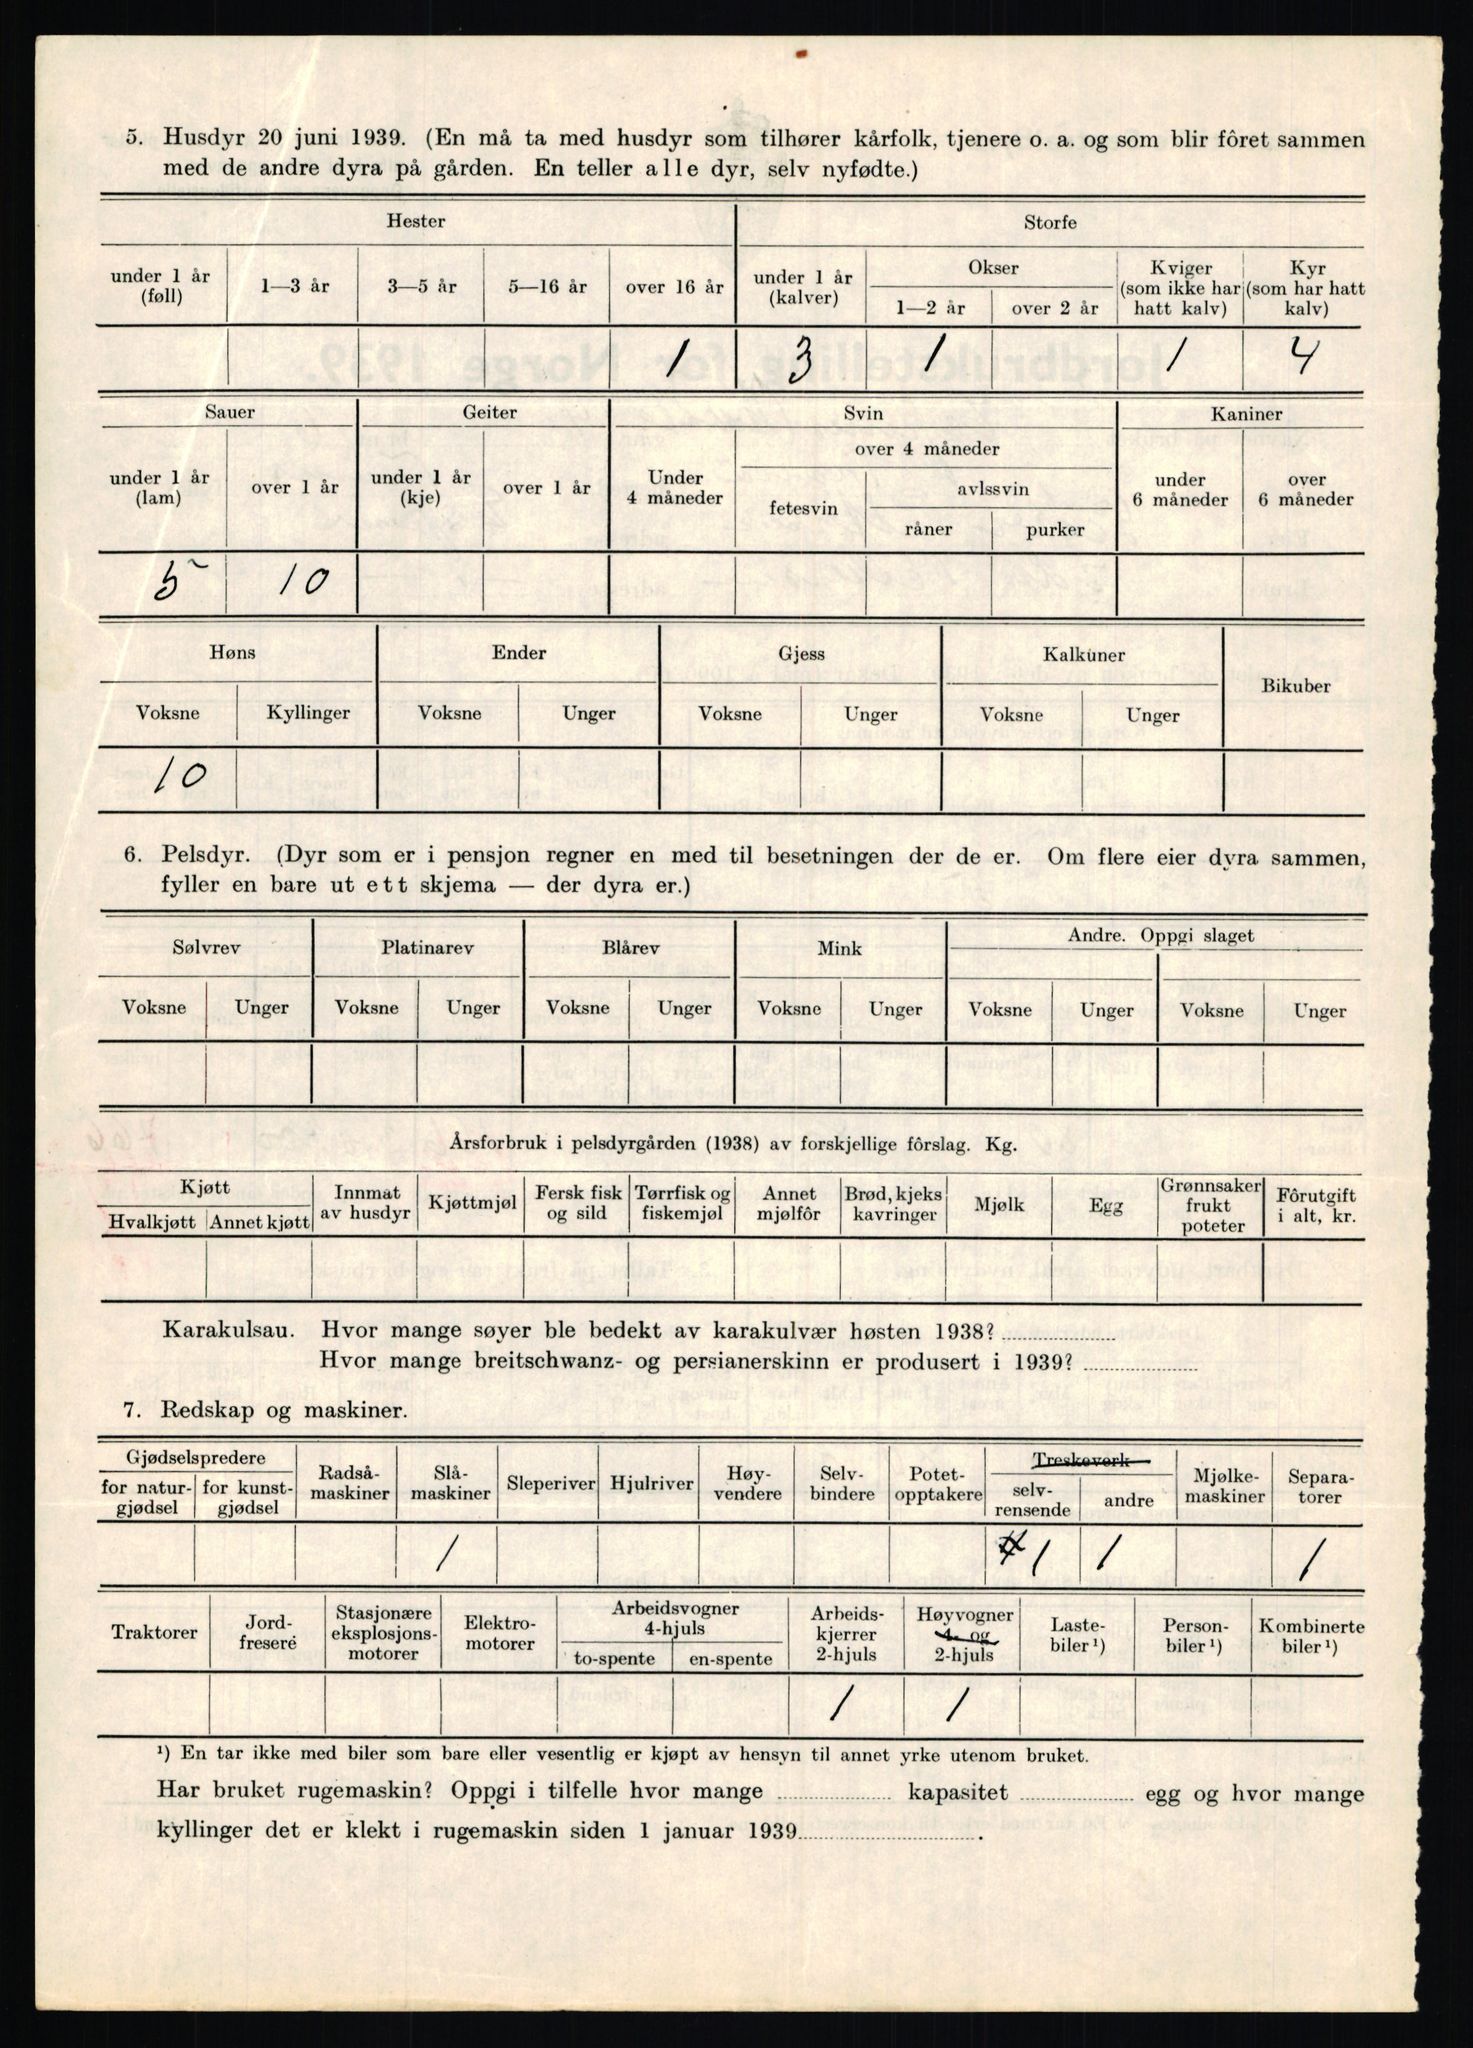 5. Husdyr 20 juni 1939. (En må ta med husdyr som tilhører kårfolk, tjenere o. a. og som blir fôret sammen
med de andre dyra på gården. En teller alle dyr, selv nyfødte.)
Hester Storfe
under 1 år (føll) 1—3 år 3—5 år 5—16 år over 16 år under 1 år (kalver) Okser 1—2 år over 2 år Kviger (som ikke har hatt kalv) Kyr (som har hatt kalv)
1 3 1 1 4
Sauer Geiter Svin Kaniner
under 1 år (lam) over 1 år under 1 år (kje) over 1 år Under 4 måneder over 4 måneder fetesvin avlssvin råner purker under 6 måneder over 6 måneder
5 10
Høns Ender Gjess Kalkuner Bikuber
Voksne Kyllinger Voksne Unger Voksne Unger Voksne Unger
10
6. Pelsdyr. (Dyr som er i pensjon regner en med til besetningen der de er. Om flere eier dyra sammen,
fyller en bare ut ett skjema — der dyra er.)
Sølvrev Platinarev Blårev Mink Andre. Oppgi slaget
Voksne Unger Voksne Unger Voksne Unger Voksne Unger Voksne Unger Voksne Unger
Årsforbruk i pelsdyrgården (1938) av forskjellige fôrslag. Kg.
Kjøtt Hvalkjøtt Annet kjøtt Innmat av husdyr Kjøttmjøl Fersk fisk og sild Tørrfisk og fiskemjøl Annet mjølfôr Brød, kjeks kavringer Mjølk Egg Grønnsaker frukt poteter Fôrutgift i alt, kr.
Karakulsau. Hvor mange søyer ble bedekt av karakulvær høsten 1938?
Hvor mange breitschwanz- og persianerskinn er produsert i 1939?
7. Redskap og maskiner.
Gjødselspredere for naturgjødsel for kunstgjødsel Radsåmaskiner Slåmaskiner Sleperiver Hjulriver Høyvendere Selvbindere Potetopptakere Treskeverk selvrensende andre Mjølkemaskiner Separatorer
1 1 1 1
Traktorer Jordfresere Stasjonære eksplosjonsmotorer Elektromotorer Arbeidsvogner 4-hjuls to-spente en-spente Arbeidskjerrer 2-hjuls Høyvogner 4- og 2-hjuls Lastebiler ¹) Personbiler ¹) Kombinerte biler ¹)
1 1
¹) En tar ikke med biler som bare eller vesentlig er kjøpt av hensyn til annet yrke utenom bruket.
Har bruket rugemaskin? Oppgi i tilfelle hvor mange kapasitet egg og hvor mange
kyllinger det er klekt i rugemaskin siden 1 januar 1939.